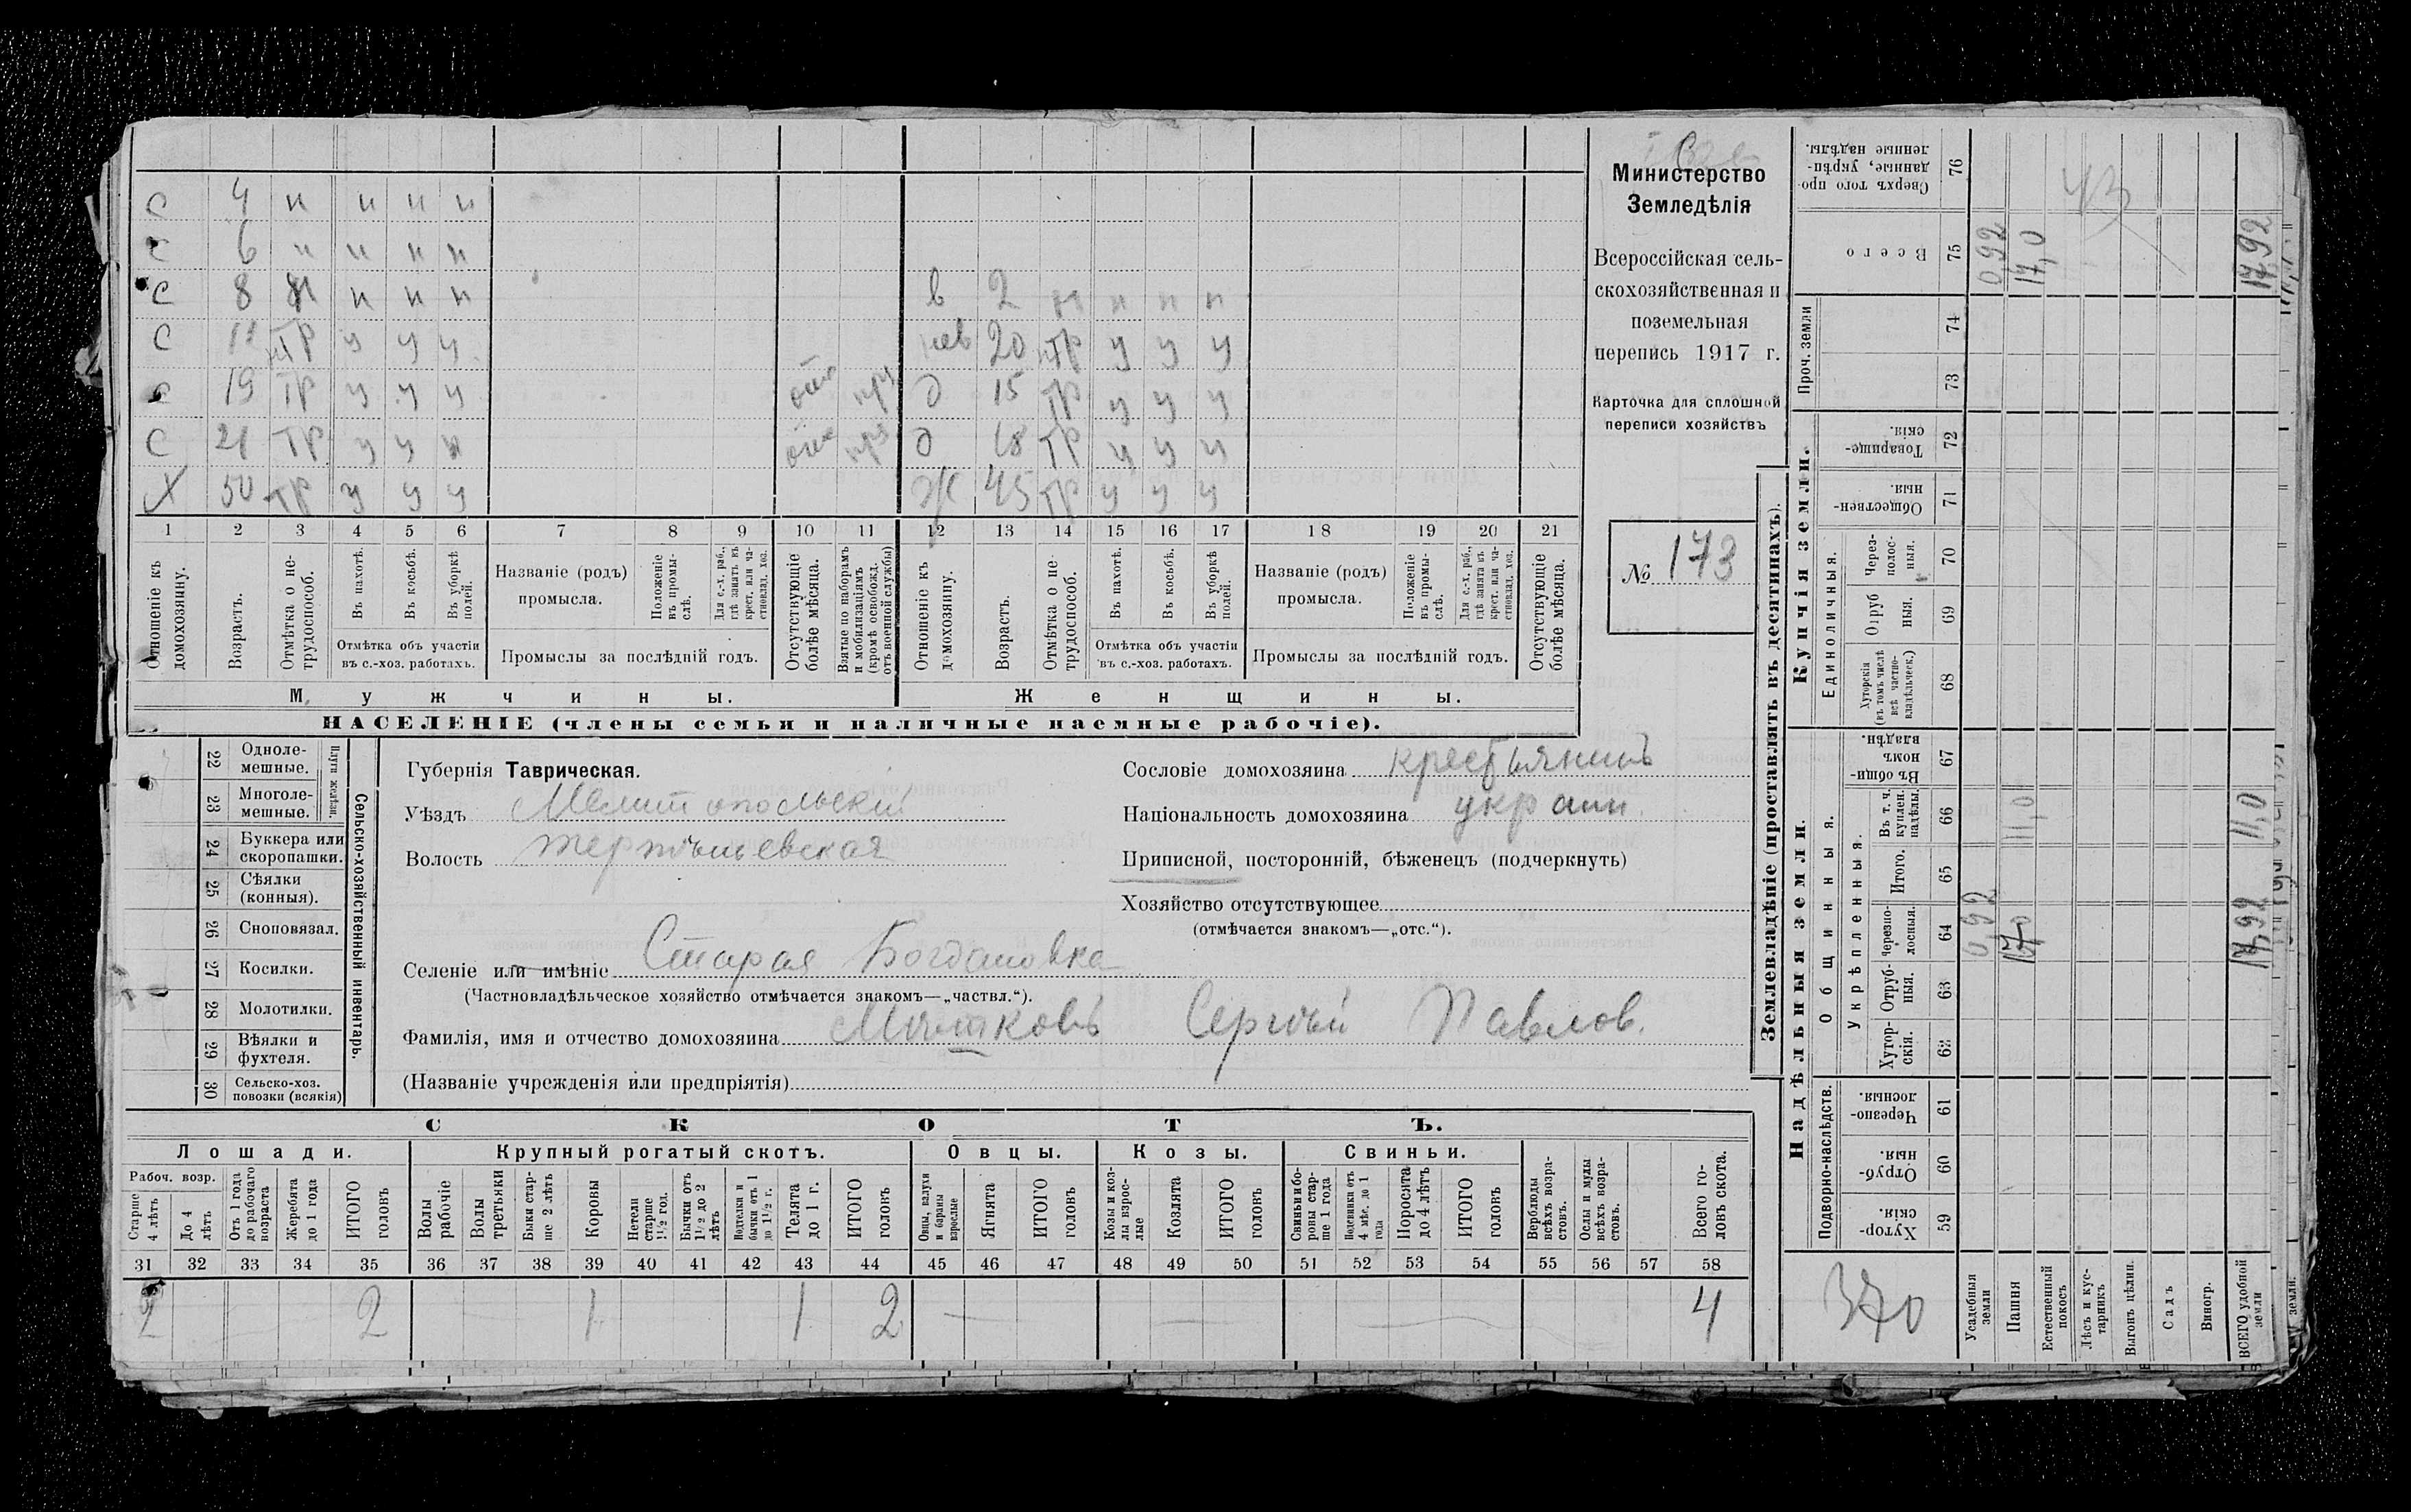 С 4 н н н н
С 6 н н н н
С 8 н н н н в 2 н н н н
С 11 нТР у у у нев 20 нТР у у у
С 19 ТР у у у д 15 ТР у у у
С 21 ТР у у д 18 ТР у у у
Х 50 ТР у у у Ж 45 ТР у у у
1 2 3 4 5 6 7 8 9 10 11 12 13 14 15 16 17 18 19 20 21
Отношеніе къ домохозяину.
Возрастъ.
Отмѣтка о не-трудоспособ.
Въ пахотѣ.
Въ косьбѣ.
Въ уборкѣ полей.
Отмѣтка объ участіи
въ с.-хоз. работахъ.
Названіе (родъ)
промысла.
Положеніе въ промы-слѣ.
Для с.-х. раб., гдѣ занятъ въ крест. или ча-стновлад. хоз.
Промыслы за послѣдній годъ.
Отсутствующіе болѣе мѣсяца.
Взятые по наборамъ и мобилизаціямъ (кромѣ освобожд. отъ военной службы)
Отношеніе къ домохозяину.
Возрастъ.
Отмѣтка о не-трудоспособ.
Въ пахотѣ.
Въ косьбѣ.
Въ уборкѣ полей.
Отмѣтка объ участіи
въ с.-хоз. работахъ.
Названіе (родъ)
промысла.
Положеніе въ промы-слѣ.
Для с.-х. раб., гдѣ занята въ крест. или ча-стновлад. хоз.
Промыслы за послѣдній годъ.
Отсутствующіе болѣе мѣсяца.
Мужчины. Женщины.
НАСЕЛЕНІЕ (члены семьи и наличные наемные рабочіе).
Министерство
Земледѣлія
Всероссійская сель-
скохозяйственная и
поземельная
перепись 1917 г.
Карточка для сплошной
переписи хозяйствъ
№ 173
22 Одноле-мешные.
23 Многоле-мешные.
Плуги желѣзн.
24 Буккера или скоропашки.
25 Сѣялки (конныя).
26 Сноповязал.
27 Косилки.
28 Молотилки.
29 Вѣялки и фухтеля.
30 Сельско-хоз. повозки (всякія)
Сельско-хозяйственный инвентарь.
Губернія Таврическая.
Уѣздъ Мелитопольскій
Волость Терпѣньевская
Сословіе домохозяина крестьянинъ
Національность домохозяина украин.
Приписной, посторонній, бѣженецъ (подчеркнуть)
Хозяйство отсутствующее
(отмѣчается знакомъ—„отс.“).
Селеніе или имѣніе Старая Богдановка
(Частновладѣльческое хозяйство отмѣчается знакомъ—„частвл.“).
Фамилія, имя и отчество домохозяина Сергѣй Павлов.
(Названіе учрежденія или предпріятія)
СКОТЪ.
Лошади. Крупный рогатый скотъ. Овцы. Козы. Свиньи.
Рабоч. возр.
Старше 4 лѣтъ
До 4 лѣтъ
Отъ 1 года до рабочаго возраста
Жеребята до 1 года
ИТОГО головъ
Волы рабочіе
Волы третьяки
Быки стар-ше 2 лѣтъ
Коровы
Нетели старше 1½ год.
Бычки отъ 1½ до 2 лѣтъ
Подтелки и бычки отъ 1 до 1½ г.
Телята до 1 г.
ИТОГО головъ
Овцы, валухи и бараны взрослые
Ягнята
ИТОГО головъ
Козы и коз-лы взрос-лые
Козлята
ИТОГО головъ
Свиньи и бо-ровы стар-ше 1 года
Подсвинки отъ 4 мѣс. до 1 года
Поросята до 4 лѣтъ
ИТОГО головъ
Верблюды всѣхъ возра-стовъ.
Ослы и мулы всѣхъ возра-стовъ.
Всего го-ловъ скота.
31 32 33 34 35 36 37 38 39 40 41 42 43 44 45 46 47 48 49 50 51 52 53 54 55 56 57 58
2 2 1 1 2 4
Землевладѣніе (проставлять въ десятинахъ).
Надѣльныя земли. Купчія земли.
Подворно-наслѣдств.
Общинныя.
Укрѣпленныя.
Единоличныя.
Проч. земли
Хутор-скія. 59
Отруб-ныя. 60
Черезпо-лосныя. 61
Хутор-скія. 62
Отруб-ныя. 63
Черезпо-лосныя. 64
Итого. 65
Въ т. ч. куплен. надѣлы. 66
Въ общи-номъ владѣн. 67
Хуторскія (въ томъ числѣ всѣ частно-владѣльческ.) 68
Отруб ныя. 69
Через-полос-ныя. 70
Обществен-ныя. 71
Товарище-скія. 72
73
74
Всего 75
Сверхъ того про-данные, укрѣп-ленные надѣлы. 76
370
Усадебныя земли 0,92 0,92
Пашня 17,0 11,0 17,0
Естественный покосъ
Лѣсъ и кус-тарникъ
Выгонъ цѣлин.
Садъ
Виногр.
ВСЕГО удобной земли 17,92 11,0 17,92